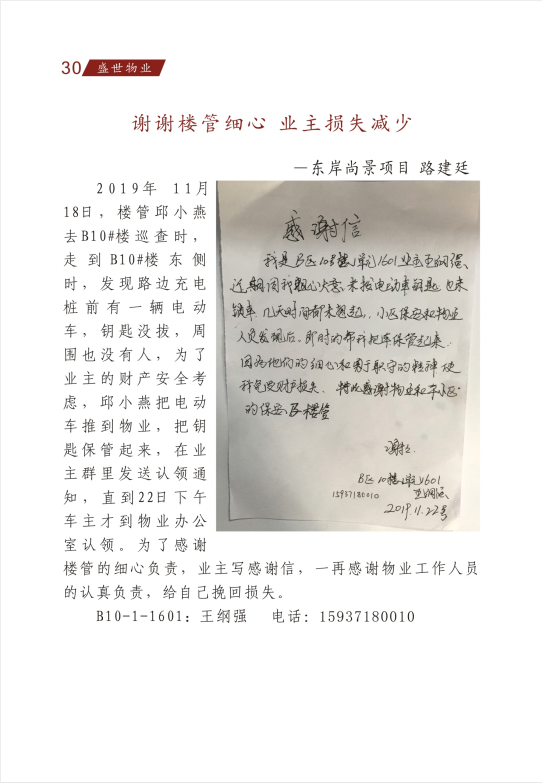 30 盛世物业
谢谢楼管细心 业主损失减少
—东岸尚景项目 路建廷
2019年 11月
18日，楼管邱小燕
去B10#楼巡查时，
走到B10#楼东侧
时，发现路边充电
桩前有一辆电动
车，钥匙没拔，周
围也没有人，为了
业主的财产安全考
虑，邱小燕把电动
车推到物业，把钥
匙保管起来，在业
主群里发送认领通
知，直到22日下午
车主才到物业办公
室认领。为了感谢
楼管的细心负责，业主写感谢信，一再感谢物业工作人员
的认真负责，给自己挽回损失。
B10-1-1601：王纲强 电话：15937180010
感谢信
我是B区10号楼1单元1601业主王纲强、
近期因我粗心大意，未拔电动车钥匙 也未
锁车，几天时间都未想起，小区保安和物业
人员发现后，即时的帮我把车保管起来
因为他们的细心和勇于职守的精神 使
我免受财产损失，特此感谢物业和本小区
的保安及楼管
谢谢
B区10楼1单元1601
15937180010 王纲强
2019.11.22号